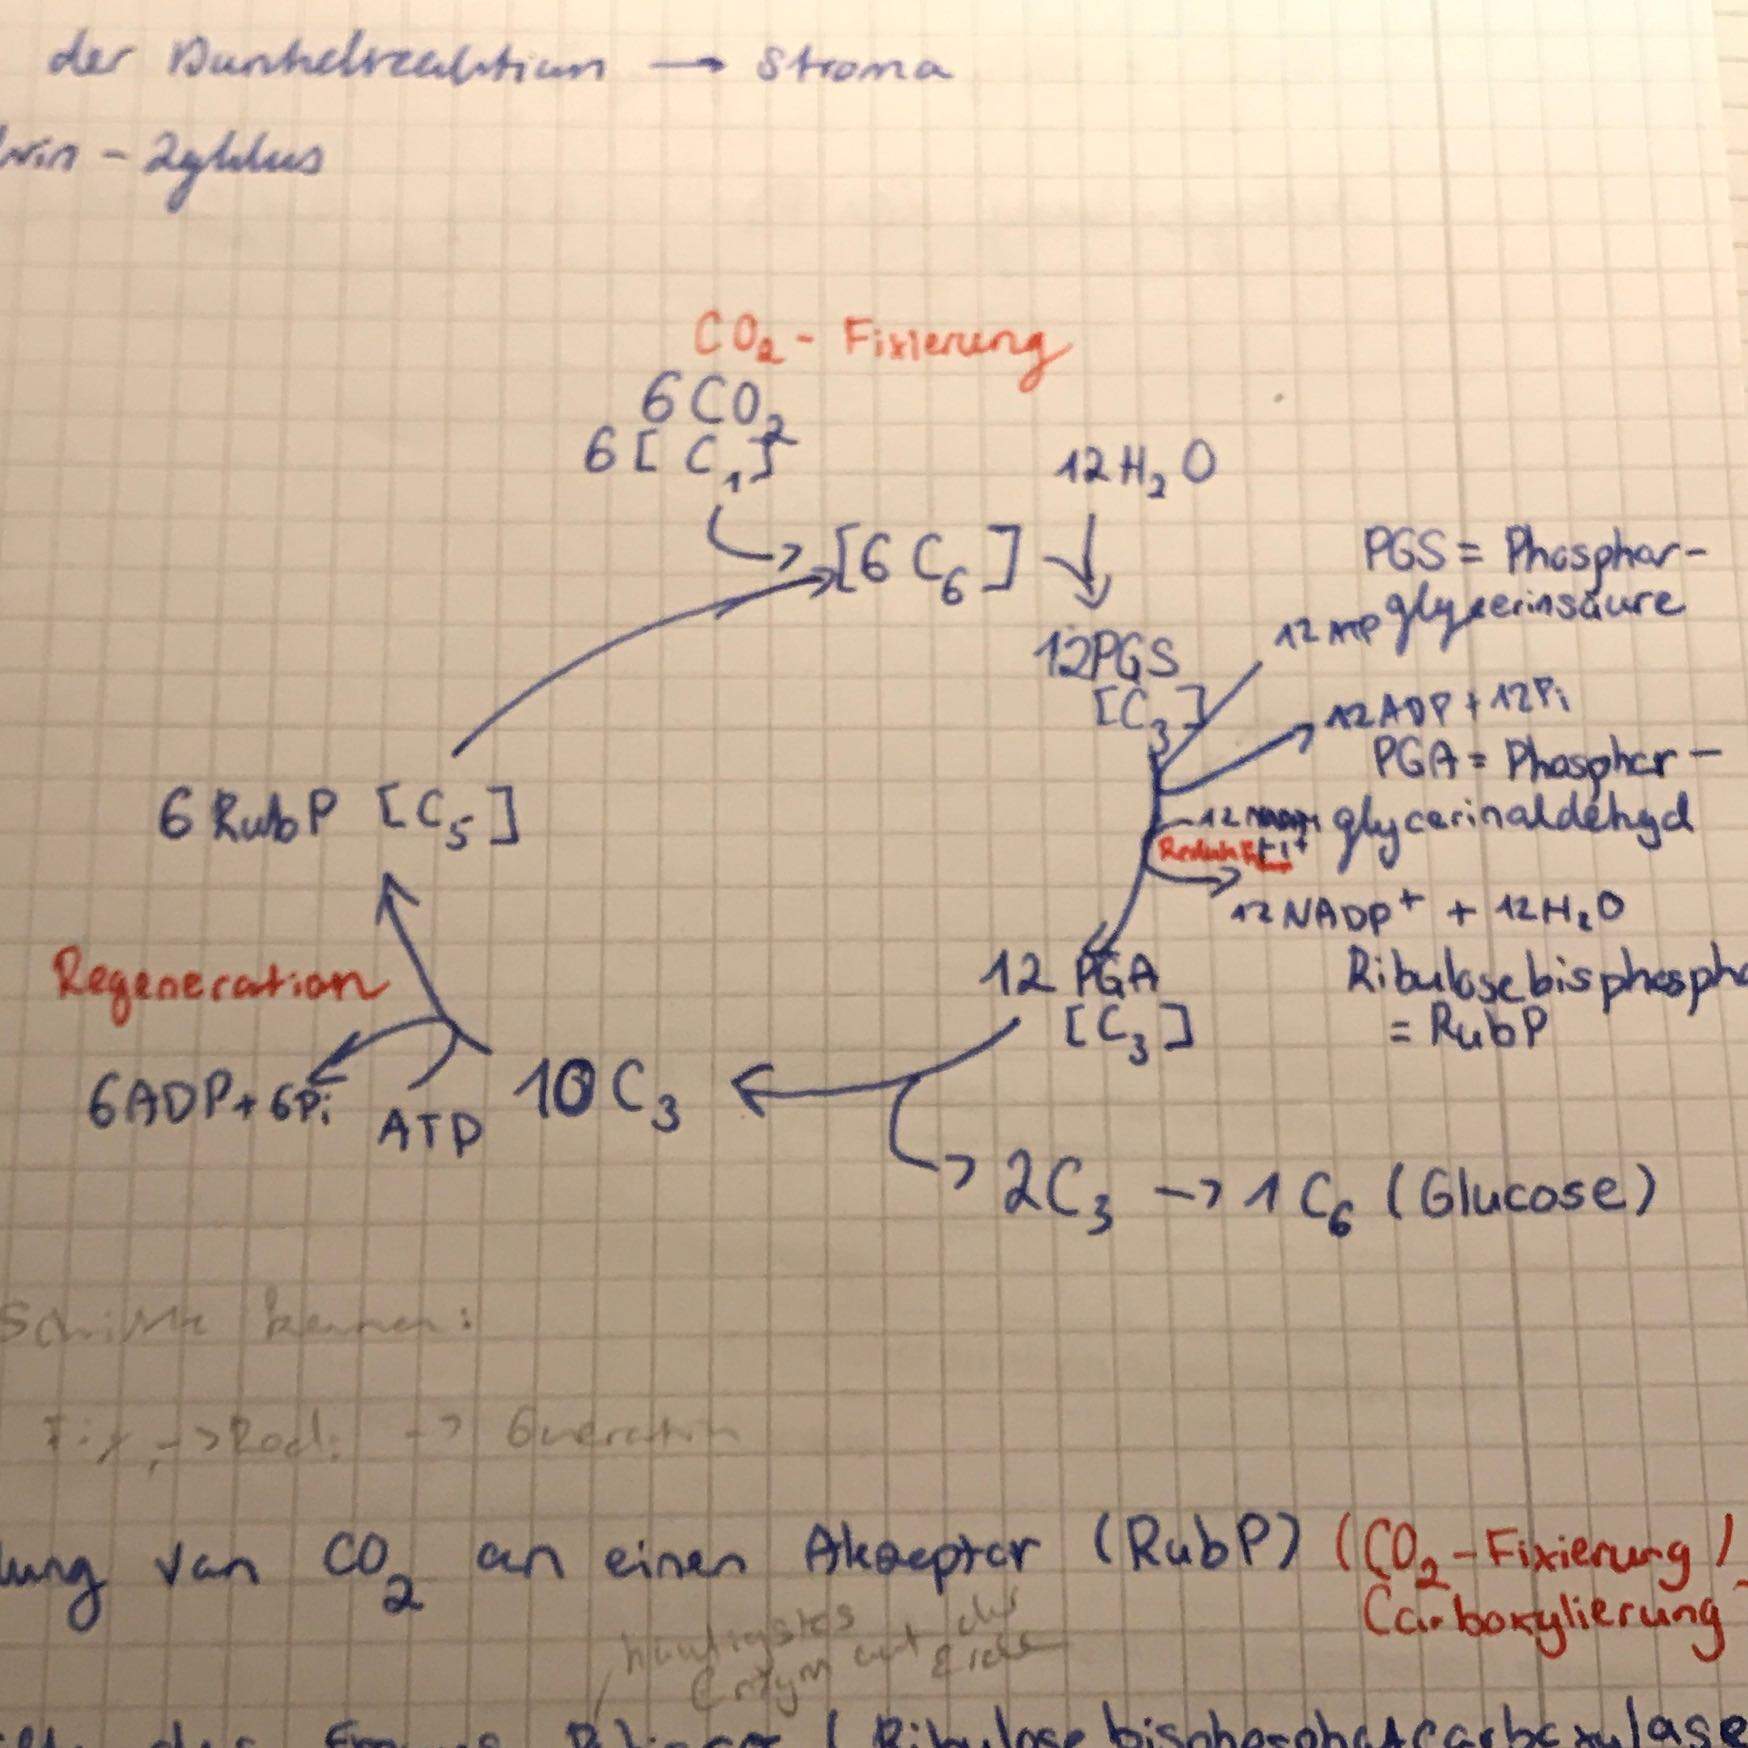 der Dunkelreaktion → Stroma
lvin - Zyklus
CO₂ - Fixierung
6 CO₂
6 [ C₁ ]
12 H₂O
[6 C₆]
PGS = Phosphor-
glycerinsäure
12 ATP
12 PGS
[C₃]
12 ADP + 12 Pi
PGA = Phosphor-
glycerinaldehyd
12
+ H⁺
12 NADP⁺ + 12 H₂O
6 RubP [C₅]
Regeneration
12 PGA
[C₃]
Ribulosebisphospha
= RubP
6 ADP + 6 Pi
ATP
10 C₃
2 C₃ → 1 C₆ (Glucose)
Schritte kennen:
Fix → Red. →
lung von CO₂ an einen Akzeptor (RubP) (CO₂ - Fixierung /
Carboxylierung
häufigstes
Enzym auf der
Erde
des Enzyms Rubisco (Ribulosebisphosphatcarboxylase